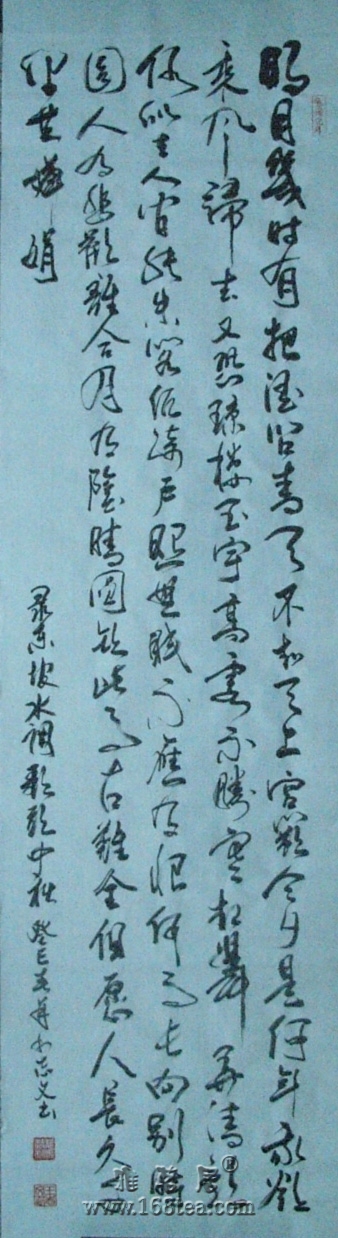 明月幾時有把酒问青天不知天上宫闕今夕是何年我欲
乘风歸去又恐琼樓玉宇高處不勝寒起舞弄清影
何似在人间转朱阁低绮户照無眠不應有恨何事长向别時
圆人有悲歡離合月有陰晴圆缺此事古難全但愿人長久千
里共嬋娟
录東坡水调歌头中秋 癸巳
www.168tea.com